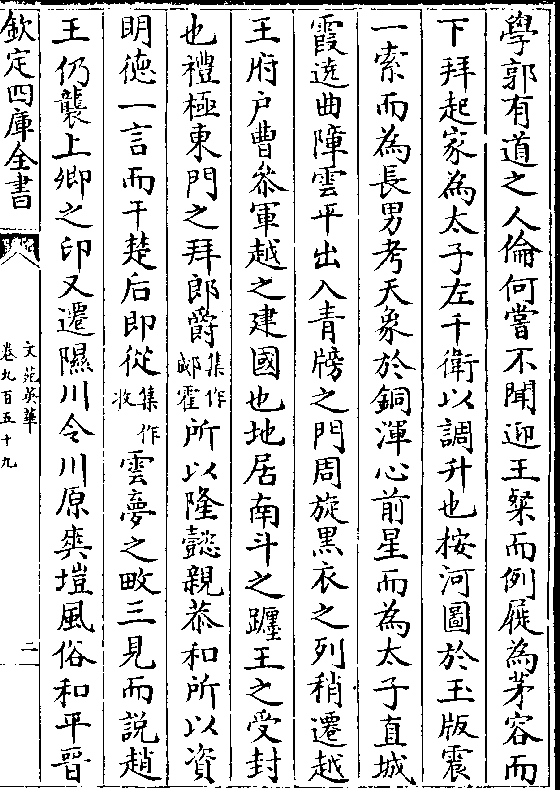 學郭有道之人倫何嘗不聞迎王粲而倒屣為茅容而
下拜起家為太子左千衛以調升也按河圖於玉版震
一索而為長男考天象於銅渾心前星而為太子直城
霞逸曲障雲平出入青牓之門周旋黒衣之列稍遷越
王府户曹叅軍越之建國也地居南斗之躔王之受封
也禮極東門之拜郎爵集作郕霍所以隆懿親恭和所以資
明徳一言而干楚后即從集作收雲夢之畋三見而説趙
王仍襲上卿之印又遷隰川令川原爽塏風俗和平晉
欽定四庫全書
文苑英華
卷九百五十九
二